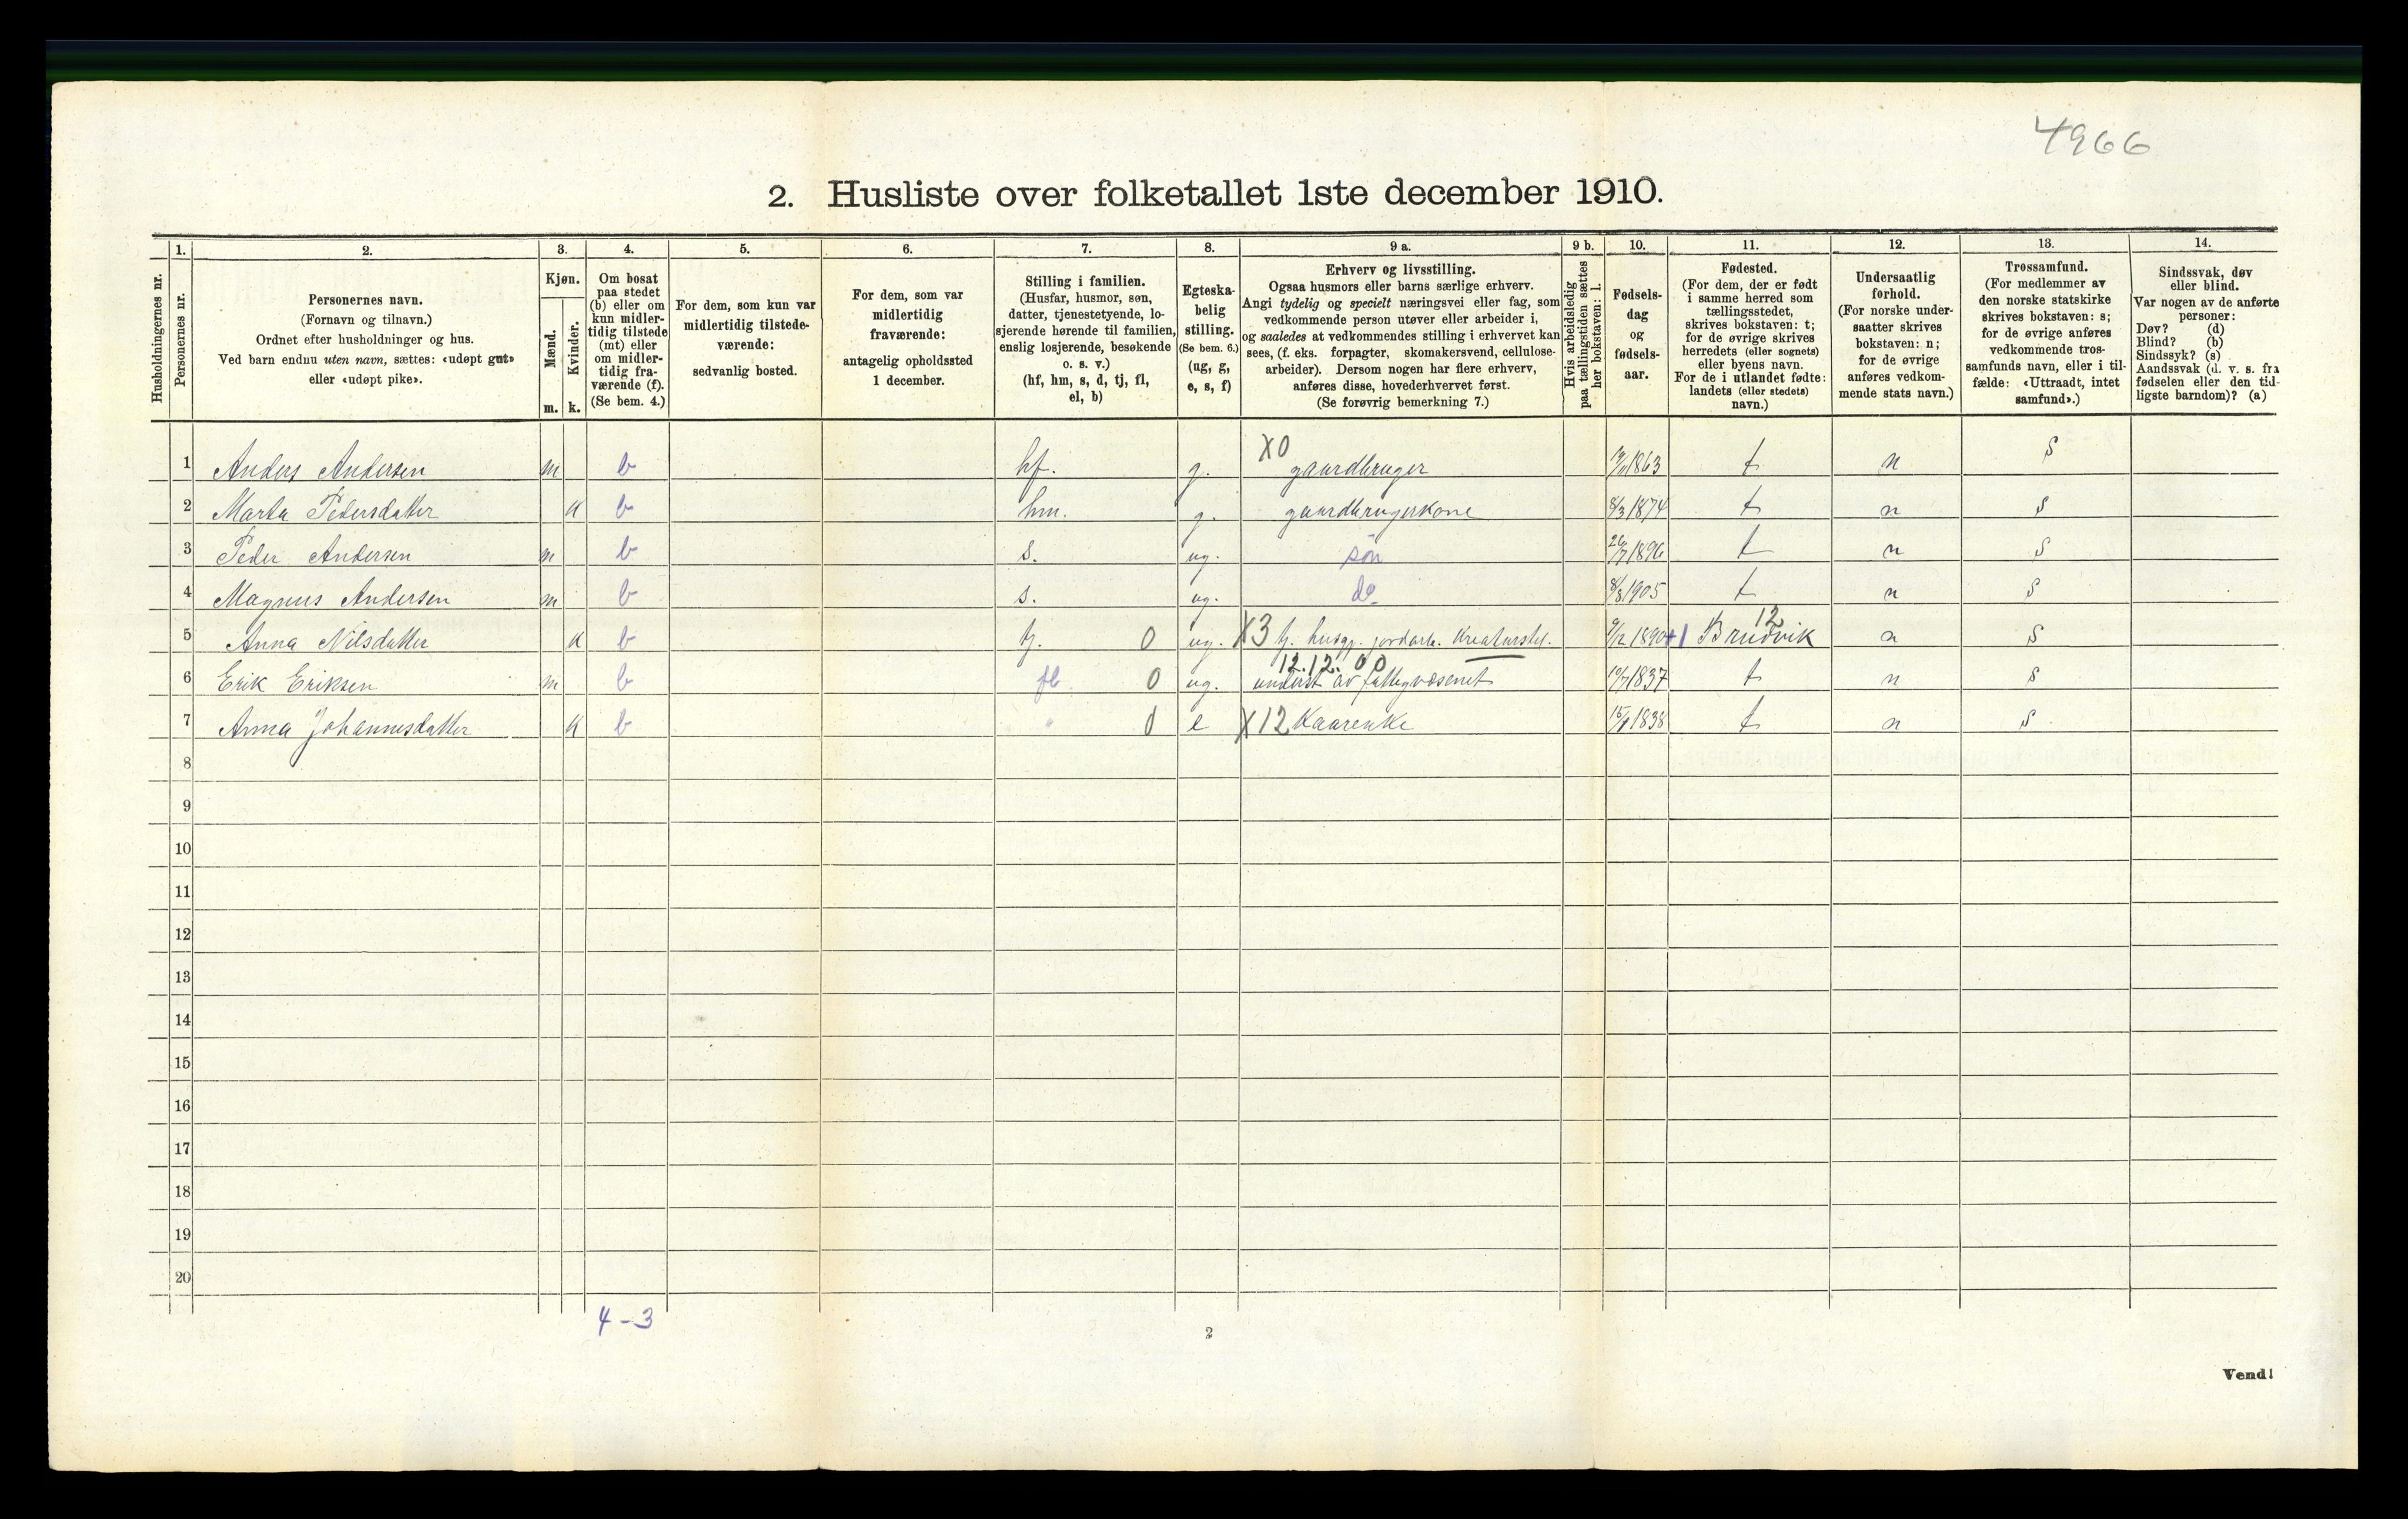 4966
2. Husliste over folketallet 1ste december 1910.
Husholdningernes nr.
1.
Personernes nr.
2.
Personernes navn.
(Fornavn og tilnavn.)
Ordnet efter husholdninger og hus.
Ved barn endnu uten navn, sættes: «udøpt gut»
eller «udøpt pike».
3.
Kjøn.
Mænd.
m.
Kvinder.
k.
4.
Om bosat
paa stedet
(b) eller om
kun midler-
tidig tilstede
(mt) eller
om midler-
tidig fra-
værende (f).
(Se bem. 4.)
5.
For dem, som kun var
midlertidig tilstede-
værende:
sedvanlig bosted.
6.
For dem, som var
midlertidig
fraværende:
antagelig opholdssted
1 december.
7.
Stilling i familien.
(Husfar, husmor, søn,
datter, tjenestetyende, lo-
sjerende hørende til familien,
enslig losjerende, besøkende
o. s. v.)
(hf, hm, s, d, tj, fl,
el, b)
8.
Egteska-
belig
stilling.
(Se bem. 6.)
(ug, g,
e, s, f)
9 a.
Erhverv og livsstilling.
Ogsaa husmors eller barns særlige erhverv.
Angi tydelig og specielt næringsvei eller fag, som
vedkommende person utøver eller arbeider i,
og saaledes at vedkommendes stilling i erhvervet kan
sees, (f. eks. forpagter, skomakersvend, cellulose-
arbeider). Dersom nogen har flere erhverv,
anføres disse, hovederhvervet først.
(Se forøvrig bemerkning 7.)
9 b.
Hvis arbeidsledig
paa tællingstiden sættes
her bokstaven: l.
10.
Fødsels-
dag
og
fødsels-
aar.
11.
Fødested.
(For dem, der er født
i samme herred som
tællingsstedet,
skrives bokstaven: t;
for de øvrige skrives
herredets (eller sognets)
eller byens navn.
For de i utlandet fødte:
landets (eller stedets)
navn.)
12.
Undersaatlig
forhold.
(For norske under-
saatter skrives
bokstaven: n;
for de øvrige
anføres vedkom-
mende stats navn.)
13.
Trossamfund.
(For medlemmer av
den norske statskirke
skrives bokstaven: s;
for de øvrige anføres
vedkommende tros-
samfunds navn, eller i til-
fælde: «Uttraadt, intet
samfund».)
14.
Sindssvak, døv
eller blind.
Var nogen av de anførte
personer:
Døv? (d)
Blind? (b)
Sindssyk? (s)
Aandssvak (d. v. s. fra
fødselen eller den tid-
ligste barndom)? (a)
1 Anders Andersen m b hf. g. X0 gaardbruger 1863 t n S
2 Marta Pedersdatter k b hm. g. gaardbrugerkone 8/3 1874 t n S
3 Peder Andersen m b s. ug. søn 26/7 1896 t n S
4 Magnus Andersen m b s. ug. do 8/8 1905 t n S
5 Anna Nilsdatter k b tj. 0 ug. X3 tj. husgj. jordarb. kreaturstel. 9/12 1890 +1 Bruvik 12 n S
6 Erik Eriksen m b fl 0 ug. 12.12. 00 underst av fattigvæsenet 10/7 1837 t n S
7 Anna Johannesdatter k b " 0 e X12 Kaarenke 1838 t n S
8
9
10
11
12
13
14
15
16
17
18
19
20
4-3
2
Vend!